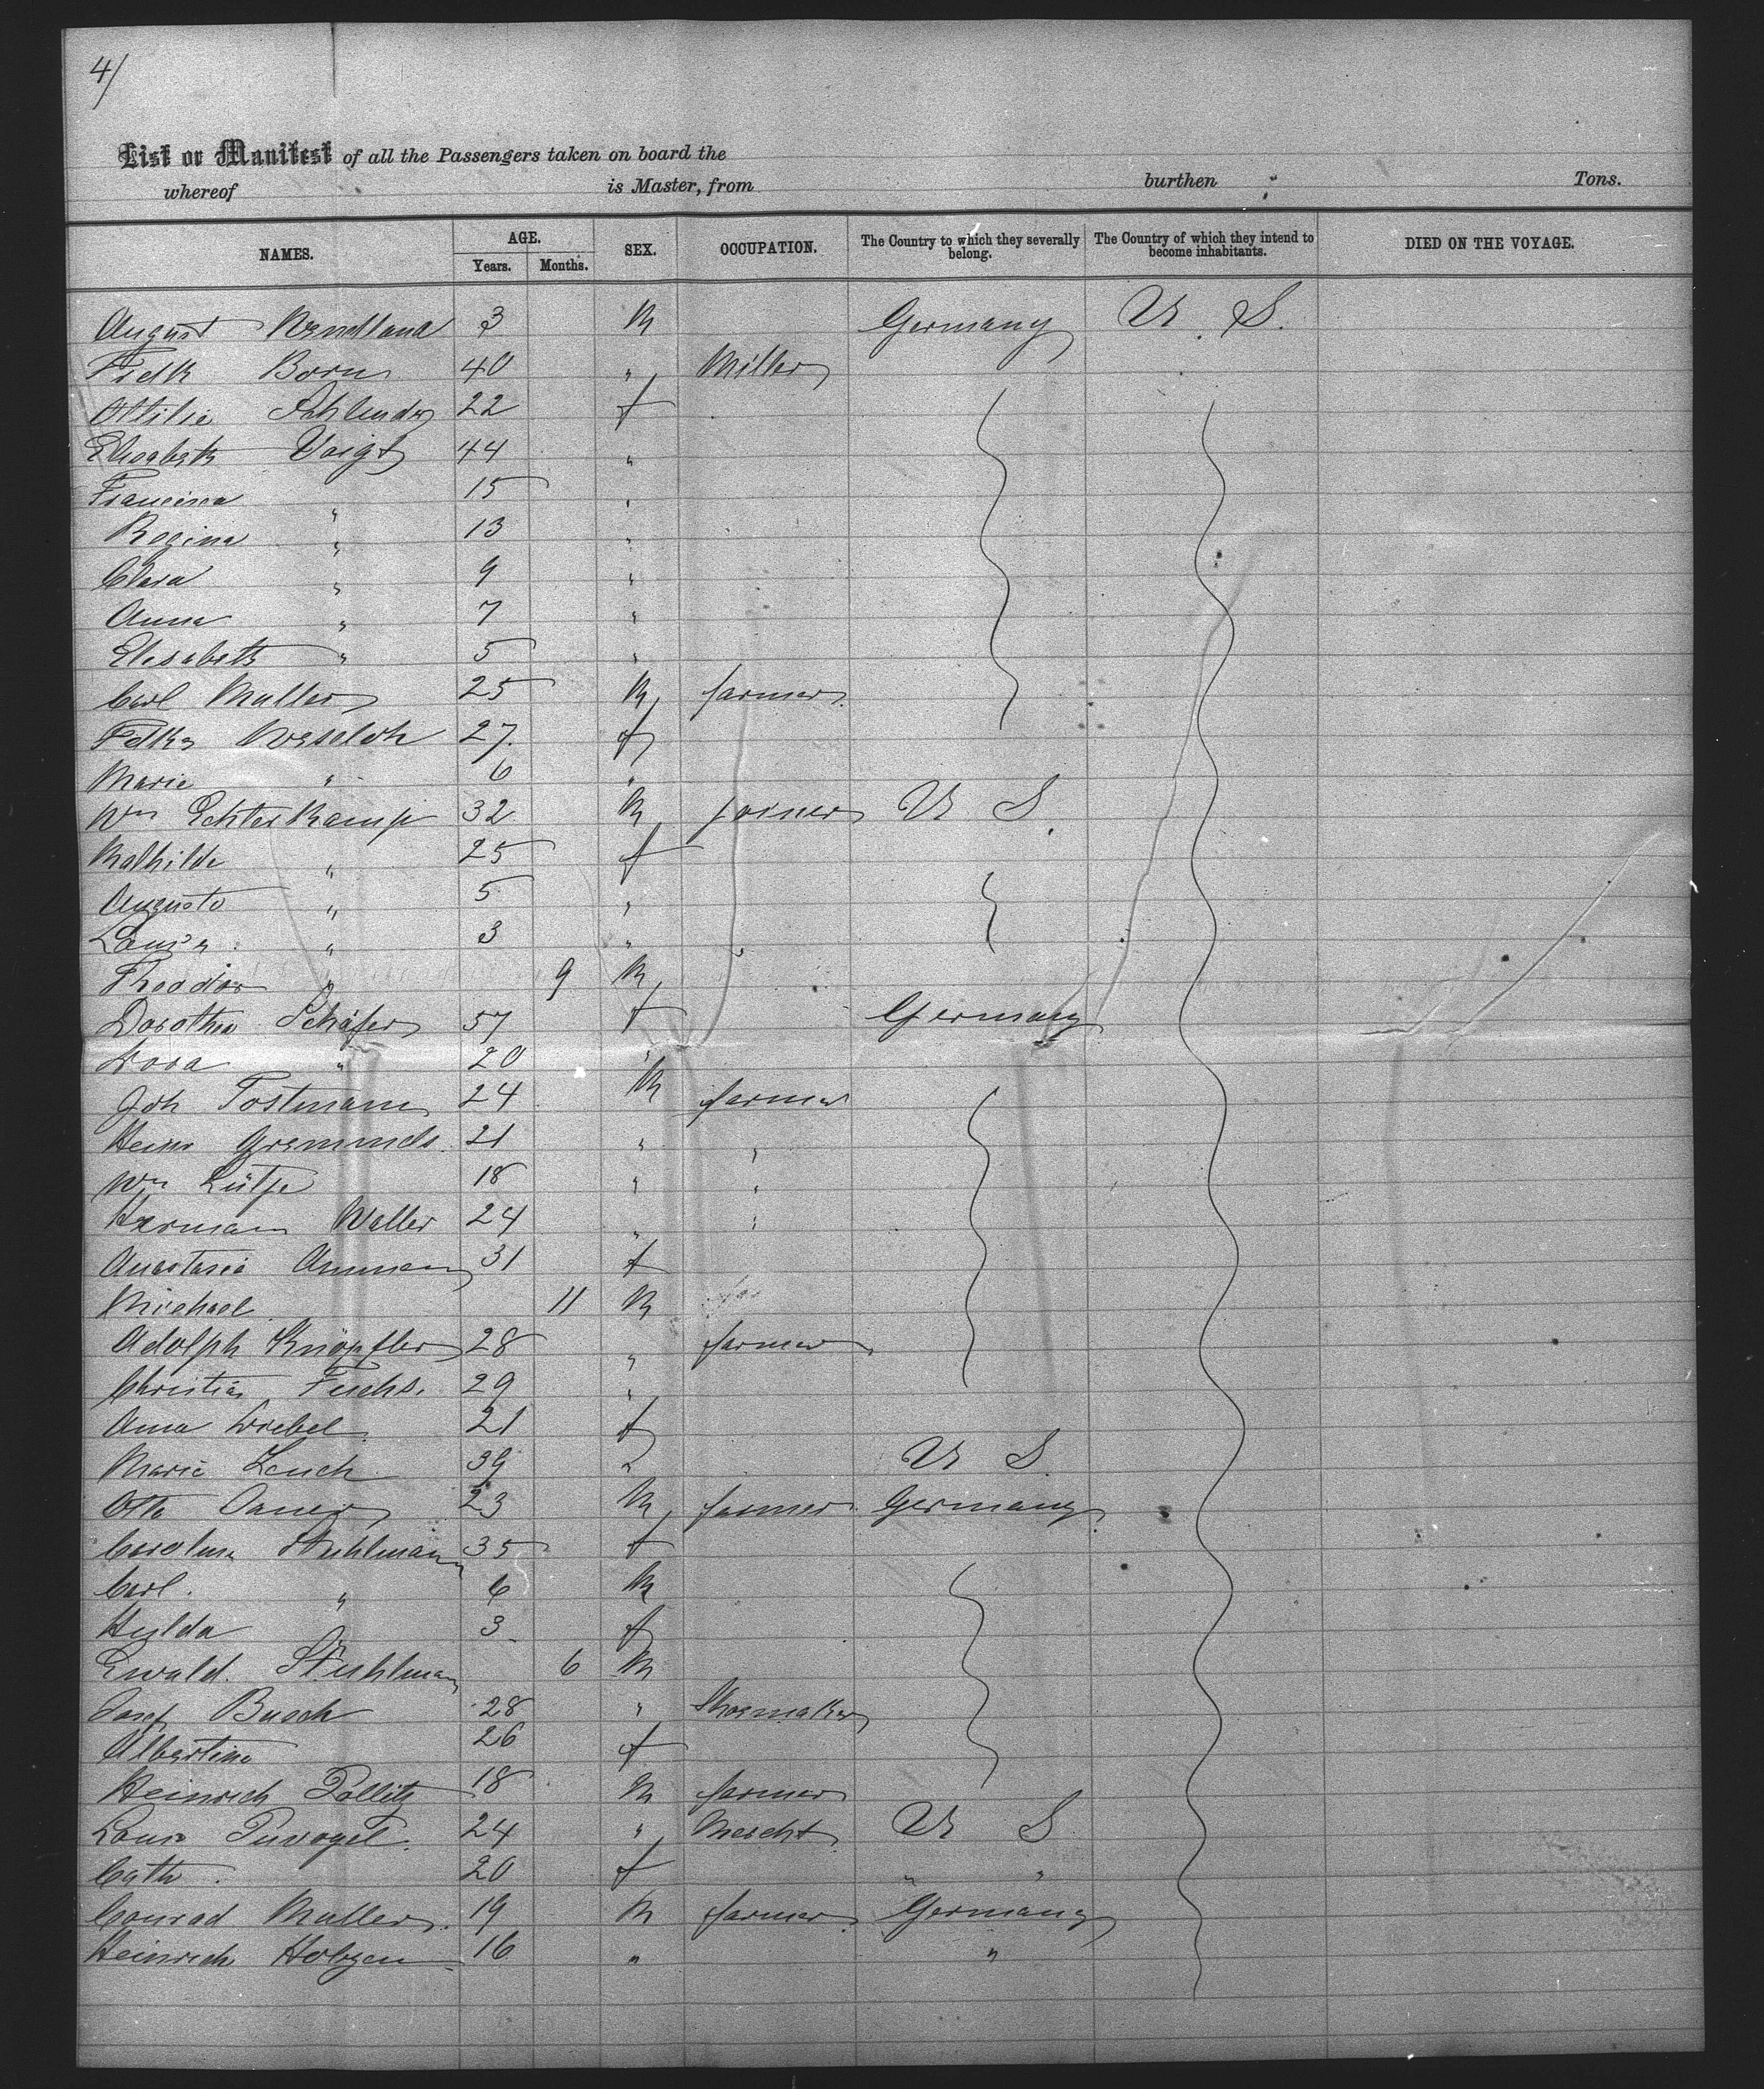 4/
List or Manifest of all the Passengers taken on board the
whereof is Master, from burthen Tons.
NAMES. AGE. Years. Months. SEX. OCCUPATION. The Country to which they severally belong. The Country of which they intend to become inhabitants. DIED ON THE VOYAGE.
August Wendland 3 M Germany U. S.
Fredk Born 40 " Miller
Ottilie 22 f
Elisabeth Voigt 44 "
Francisca " 15 "
Regina " 13 "
Clara " 9 "
Anna " 7 "
Elisabeth " 5 "
Carl Muller 25 M farmer
Fdke Weseloh 27 f
Marie " 6 "
Wm Echterkamp 32 M joiner U S.
Mathilde " 25 f
Auguste " 5 "
Louise " 3 "
Theodor " 9 M
Dorothea Schäfer 57 f Germany
Dora " 20 "
Joh Tostmann 24 M farmer
Heinr 21 " "
Wm Lütje 18 " "
Herman Weller 24 " "
Anastasia Amman 31 f
Michael 11 M
Adolph Knöpfler 28 " farmer
Christian Fuchs. 29 "
Anna Driebel 21 f
Marie Lench 39 " U S.
Otto 23 M farmer Germany
Caroline Stuhlmann 35 f
Carl " 6 M
Hulda " 3 f
Ewald. Stuhlman 6 M
Josef Busch 28 " Shoemaker
Albertine 26 f
Heinrich Pollitz 18 M farmer
Louis Puvogel. 24 " Mercht U S
Cath. 20 f " "
Conrad Muller. 19 M farmer Germany
Heinrich 16 " "